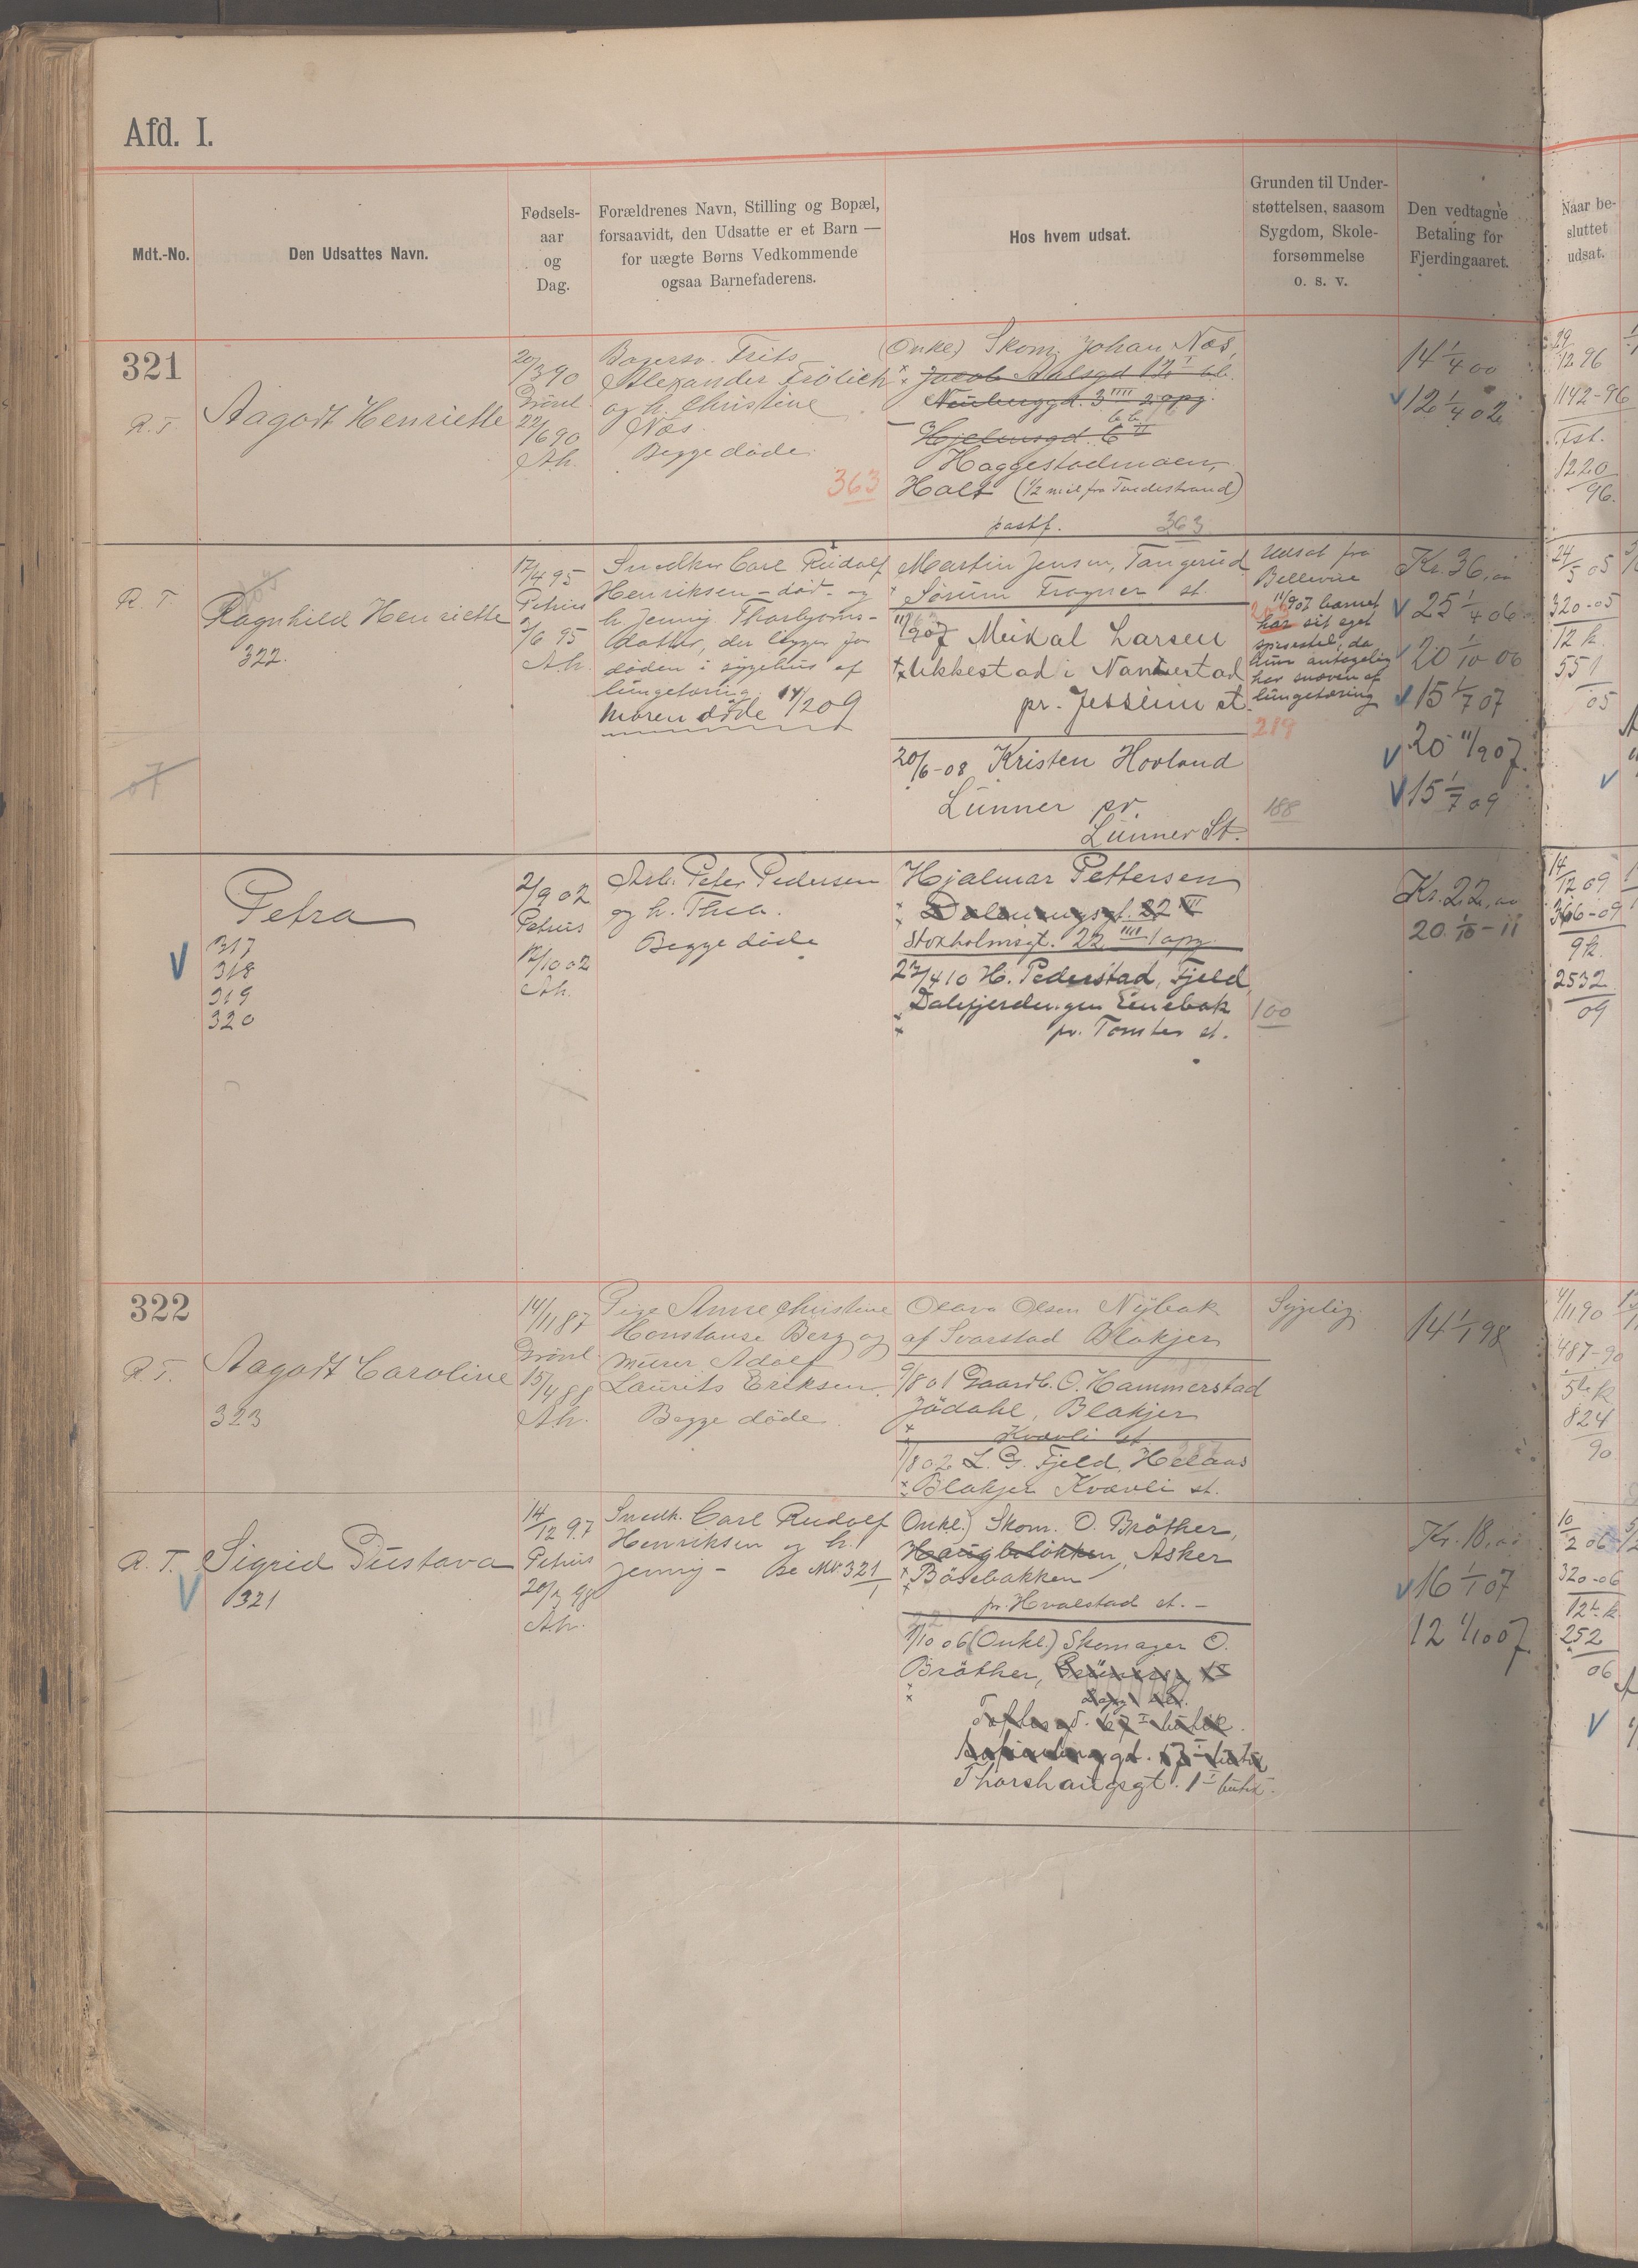 Afd. I.
Mdt.-No.
Den Udsattes Navn.
Fødsels-
aar
og
Dag.
Forældrenes Navn, Stilling og Bopæl,
forsaavidt, den Udsatte er et Barn —
for uægte Børns Vedkommende
ogsaa Barnefaderens.
Hos hvem udsat.
Grunden til Under-
støttelsen, saasom
Sygdom, Skole-
forsømmelse
o. s. v.
Den vedtagne
Betaling for
Fjerdingaaret.
Naar be-
sluttet
udsat.
321
R. T.
Aagodt Henriette
20/3 90
Grönl.
22/6 90
Ah.
Bagersv. Frits
Alexander Frölich
og h. Christine
Næs.
Begge døde.
363
(Onkel) Skom. Johan Næs,
Jacob Aalsgd 12 I
Neuberggd. 3 IIII 2 opg.
Hjelmsgd. 6 II
Haggestadmoen,
Holt (1/2 mil fra Tvedestrand)
postf.
363
14 1/4 00
12 1/4 02
29/12 96
1142-96
Fst.
1220
96.
R. T.
Ragnhild Henriette
322.
07
17/4 95
Petrus
2/6 95
Ah.
Snedker Carl Rudolf
Henriksen - död - og
h. Jenny Thorbjørns-
datter, der ligger for
døden i sygehus af
lungetæring.
Moren døde 14/2 09
Martin Jensen, Tangerud
Sørum Frogner st.
11/9 07 Meikal Larsen
Ukkestad i Nannestad
pr. Jessheim st.
20/6-08 Kristen Hovland
Lunner pr.
Lunner St.
Udsat fra
Bellevue
11/9 07 barnet
har sit eget
spisestel, da
hun antagelig
har snæven af
lungetæring
289
188
Kr. 36,00
25 1/4 06
20 1/10 06
15 1/7 07
20 11/9 07
15 1/7 09
24/5 05
320-05
12 k.
551
05
Petra
317
318
319
320
2/9 02
Petrus
12/10 02
Ah.
Arb. Peter Pedersen
og h. Thea.
Begge døde
Hjalmar Pettersen
Dælenengsgt. 22 III
Stockholmsgt. 22 IIII 1 opg.
27/4 10 H. Pederstad, Fjeld
Dalefjerdingen Enebak
pr. Tomter st.
100
Kr. 22,00
20 1/10-11
14/12 09
366-09
9 k.
2532
09
322
R. T.
Aagodt Caroline
323
14/11 87
Grönl.
15/4 88
Ah.
Pige Anne Christine
Konstanse Berg og
murer Adolf
Laurits Eriksen.
Begge döde.
Olava Olsen Nybak
af Svarstad Blakjer
9/8 01 Gaardb. O. Hammerstad
Jödahl, Blakjer
Kvævli st
1/8 02 L. G. Fjeld, Helaas
Blakjer Kvævli st.
Sygelig.
14 1/1 98
4/11 90
487-90
5te k
824
90
R. T.
Sigrid Gustava
321
14/12 97
Petrus
20/3 98
Ah.
Snedk. Carl Rudolf
Henriksen og h.
Jenny - Se Mt. 321/1
Onkel) Skom. O. Bråther,
Haugbaløkken, Asker
Båsebakken
pr. Hvalstad st. -
1/10 06 (Onkel) Skomager O.
Bråther,
Toftesgd.
Thorshaugsgt. 1 I butik.
Kr. 18,00
16 1/1 07
12 1/10 07
10/2 06
320-06
12te k.
252
06